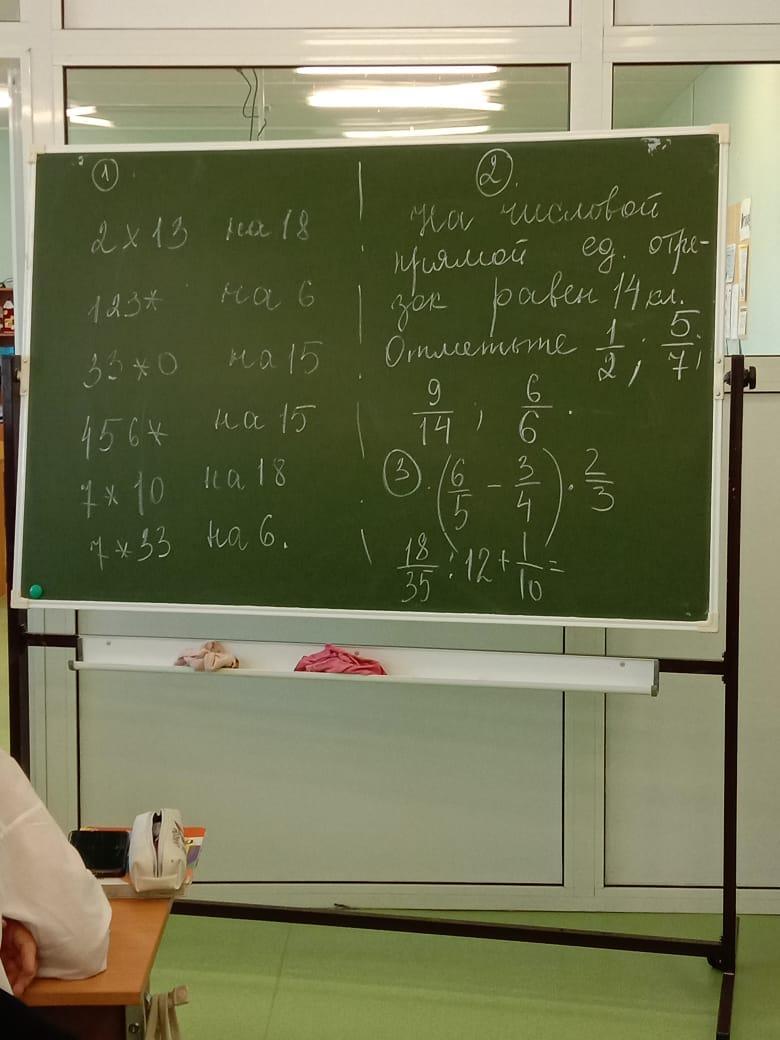 1
2*13 на 18
123* на 6
33*0 на 15
456* на 15
7*10 на 18
7*33 на 6.
2.
На числовой
прямой ед. отре-
зок равен 14 кл.
Отметьте 1/2; 5/7;
9/14; 6/6.
3. (6/5 - 3/4) · 2/3
18/35 : 12 + 1/10 =